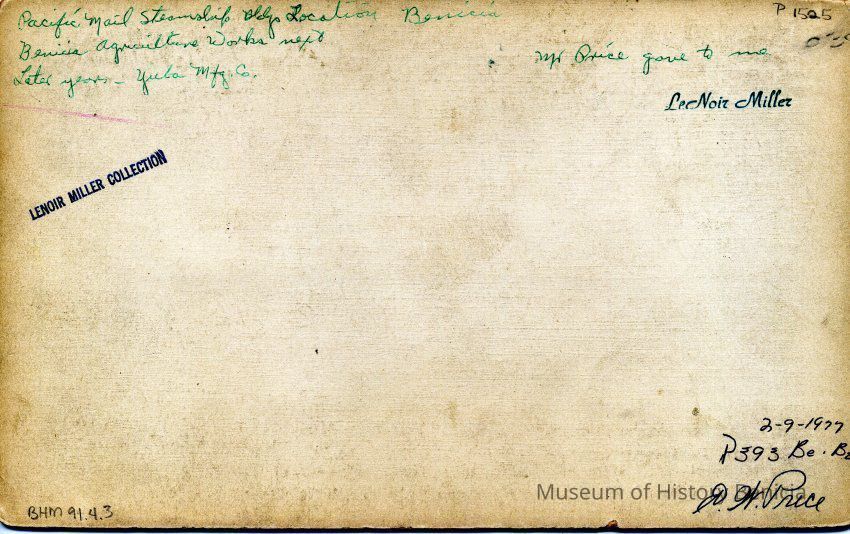 Pacific Mail Steamship Bldgs Location Benicia
P 1525
Benicia Agriculture Works next
Mr Price gave to me
Later years - Yuba Mfg. Co.
LeNoir Miller
LENOIR MILLER COLLECTION
2-9-1977
P393 Be.
Museum of History Benicia
Price
BHM 91.4.3